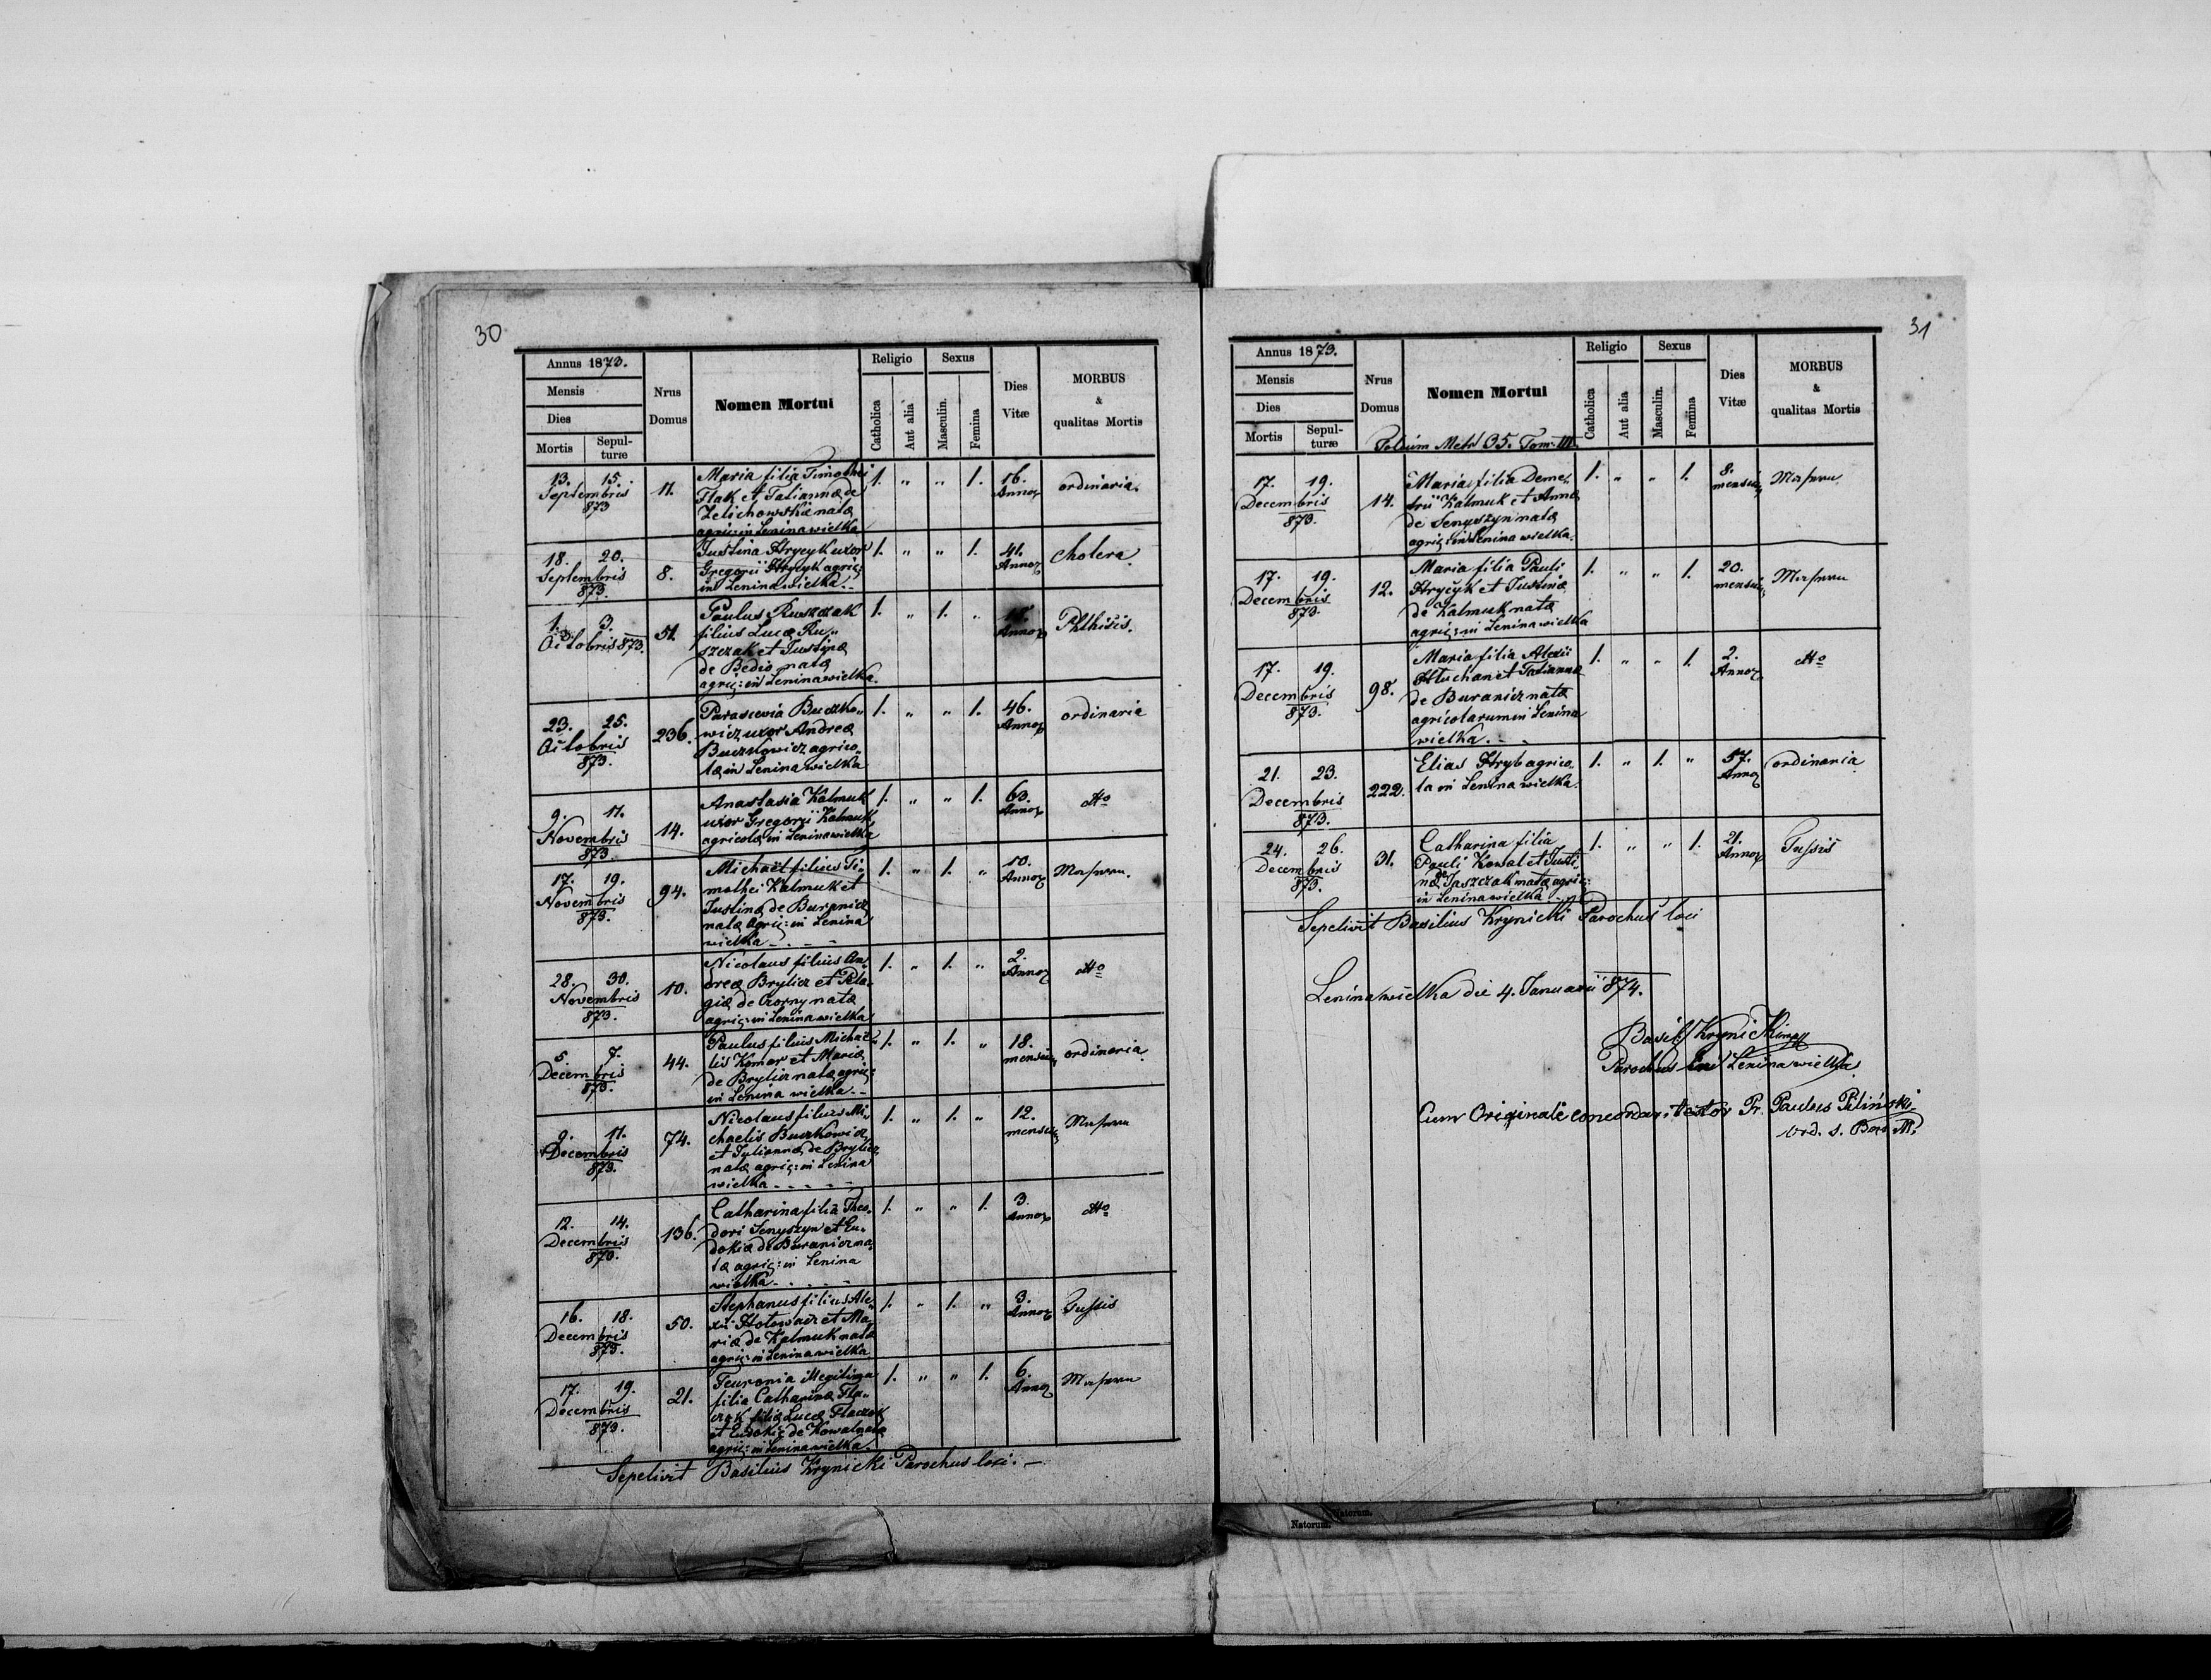 30
Annus 1873.
Mensis
Dies
Mortis
Sepul-
turæ
Nrus
Domus
Nomen Mortui
Religio
Catholica
Aut alia
Sexus
Masculin.
Femina
Dies
Vitæ
MORBUS
&
qualitas Mortis
13. 15.
Septembris
873
11.
Maria filia Timothei
Flak et Tatiannæ de
Zelichowskie natæ
agric: in Lenina wielka
1. " " 1.
16.
Annor
ordinaria.
18. 20.
Septembris
873.
8.
Justina Hrycyk uxor
Gregorii Hrycyk agric:
in Lenina wielka . -
1. " " 1.
41.
Annor
cholera
1. 3.
Octobris 873.
51.
Paulus Ruszczak
filius Lucæ Ru„
szczak et Justinæ
de Bedio natæ
agric: in Lenina wielka.
1. " 1. "
Annor
Phthisis.
23. 25.
Octobris
873.
236.
Parascevia Buczko„
wicz uxor Andreæ
Buczkowicz agrico„
læ in Lenina wielka
1. " " 1.
46.
Annor
ordinaria
9. 11.
Novembris
873
14.
Anastasia Kalmuk
uxor Gregorii Kalmuk
agricolæ in Lenina wielka
1. " " 1.
63.
Annor
dtto
17. 19.
Novembris
873.
94.
Michaël filius Ti„
mothei Kalmuk et
Justinæ de Buranicz
natæ agric: in Lenina
wielka - . - -
1. " 1. "
10.
Annor
28. 30.
Novembris
873.
10.
Nicolaus filius An„
dreæ Brylicz et Pela„
giæ de Czorny natæ
agric: in Lenina wielka
1. " 1. "
2.
Annor
dtto
5. 7.
Decembris
873.
44.
Paulus filius Michaë„
lis Komar et Mariæ
de Brylicz natæ agric:
in Lenina wielka . -
1. " 1. "
18.
mensium
ordinaria
9. 11.
Decembris
873.
74.
Nicolaus filius Mi„
chaelis Buczkowicz
et Julianæ de Brylicz
natæ agric: in Lenina
wielka - - - - -
1. " 1. "
12.
mensium
12. 14.
Decembris
873.
136.
Catharina filia Theo„
dori Senyszyn et Eu„
dokiæ de Buranicz na„
tæ agric: in Lenina
wielka - . - . -
1. " " 1.
3.
Annor
dtto
16. 18.
Decembris
873.
50.
Stephanus filius Ale„
xii Hotowacz et Ma„
riæ de Kalmuk natæ
agric: in Lenina wielka
1. " 1. "
3.
Annor
Tussis
17. 19.
Decembris
873.
21.
Feuronia illegitima
filia Catharinæ Fla„
czok filiæ Lucæ Flaczok
et Eudokiæ de Kowal natæ
agric: in Lenina wielka.
1. " " 1.
6.
Annor
Sepelivit Basilius Krynicki Parochus loci. -
31
Annus 1873.
Mensis
Dies
Mortis
Sepul-
turæ
Nrus
Domus
Nomen Mortui
Religio
Catholica
Aut alia
Sexus
Masculin.
Femina
Dies
Vitæ
MORBUS
&
qualitas Mortis
Folium Metr 35. Tom: III.
17. 19.
Decembris
873.
14.
Maria filia Deme„
trii Kalmuk et Annæ
de Senyszyn natæ
agric: in Lenina wielka.
1. " " 1.
8.
mensium
17. 19.
Decembris
873.
12.
Maria filia Pauli
Hrycyk et Justinæ
de Kalmuk natæ
agric: in Lenina wielka
1. " " 1.
20.
mensium
17. 19.
Decembris
873.
98.
Maria filia Alexii
Hluchan et Tatiannæ
de Buranicz natæ
agricolarum in Lenina
wielka . - -
1. " " 1.
2.
Annor
dtto
21. 23.
Decembris
873.
222.
Elias Hryb agrico„
la in Lenina wielka.
1. " 1. "
57.
Annor
ordinaria
24. 26.
Decembris
873.
31.
Catharina filia
Pauli Kowal et Justi„
næ de Jaszczak natæ agric:
in Lenina wielka
1. " " 1.
21.
Annor
Tussis
Sepelivit Basilius Krynicki Parochus loci
Lenina wielka die 4. Januarii 874.
Parochus Lenina wielka
Cum Originale concordari testor Pr. Paulus Piliński
ord. s. Bas. M.
Natorum.
Natorum.